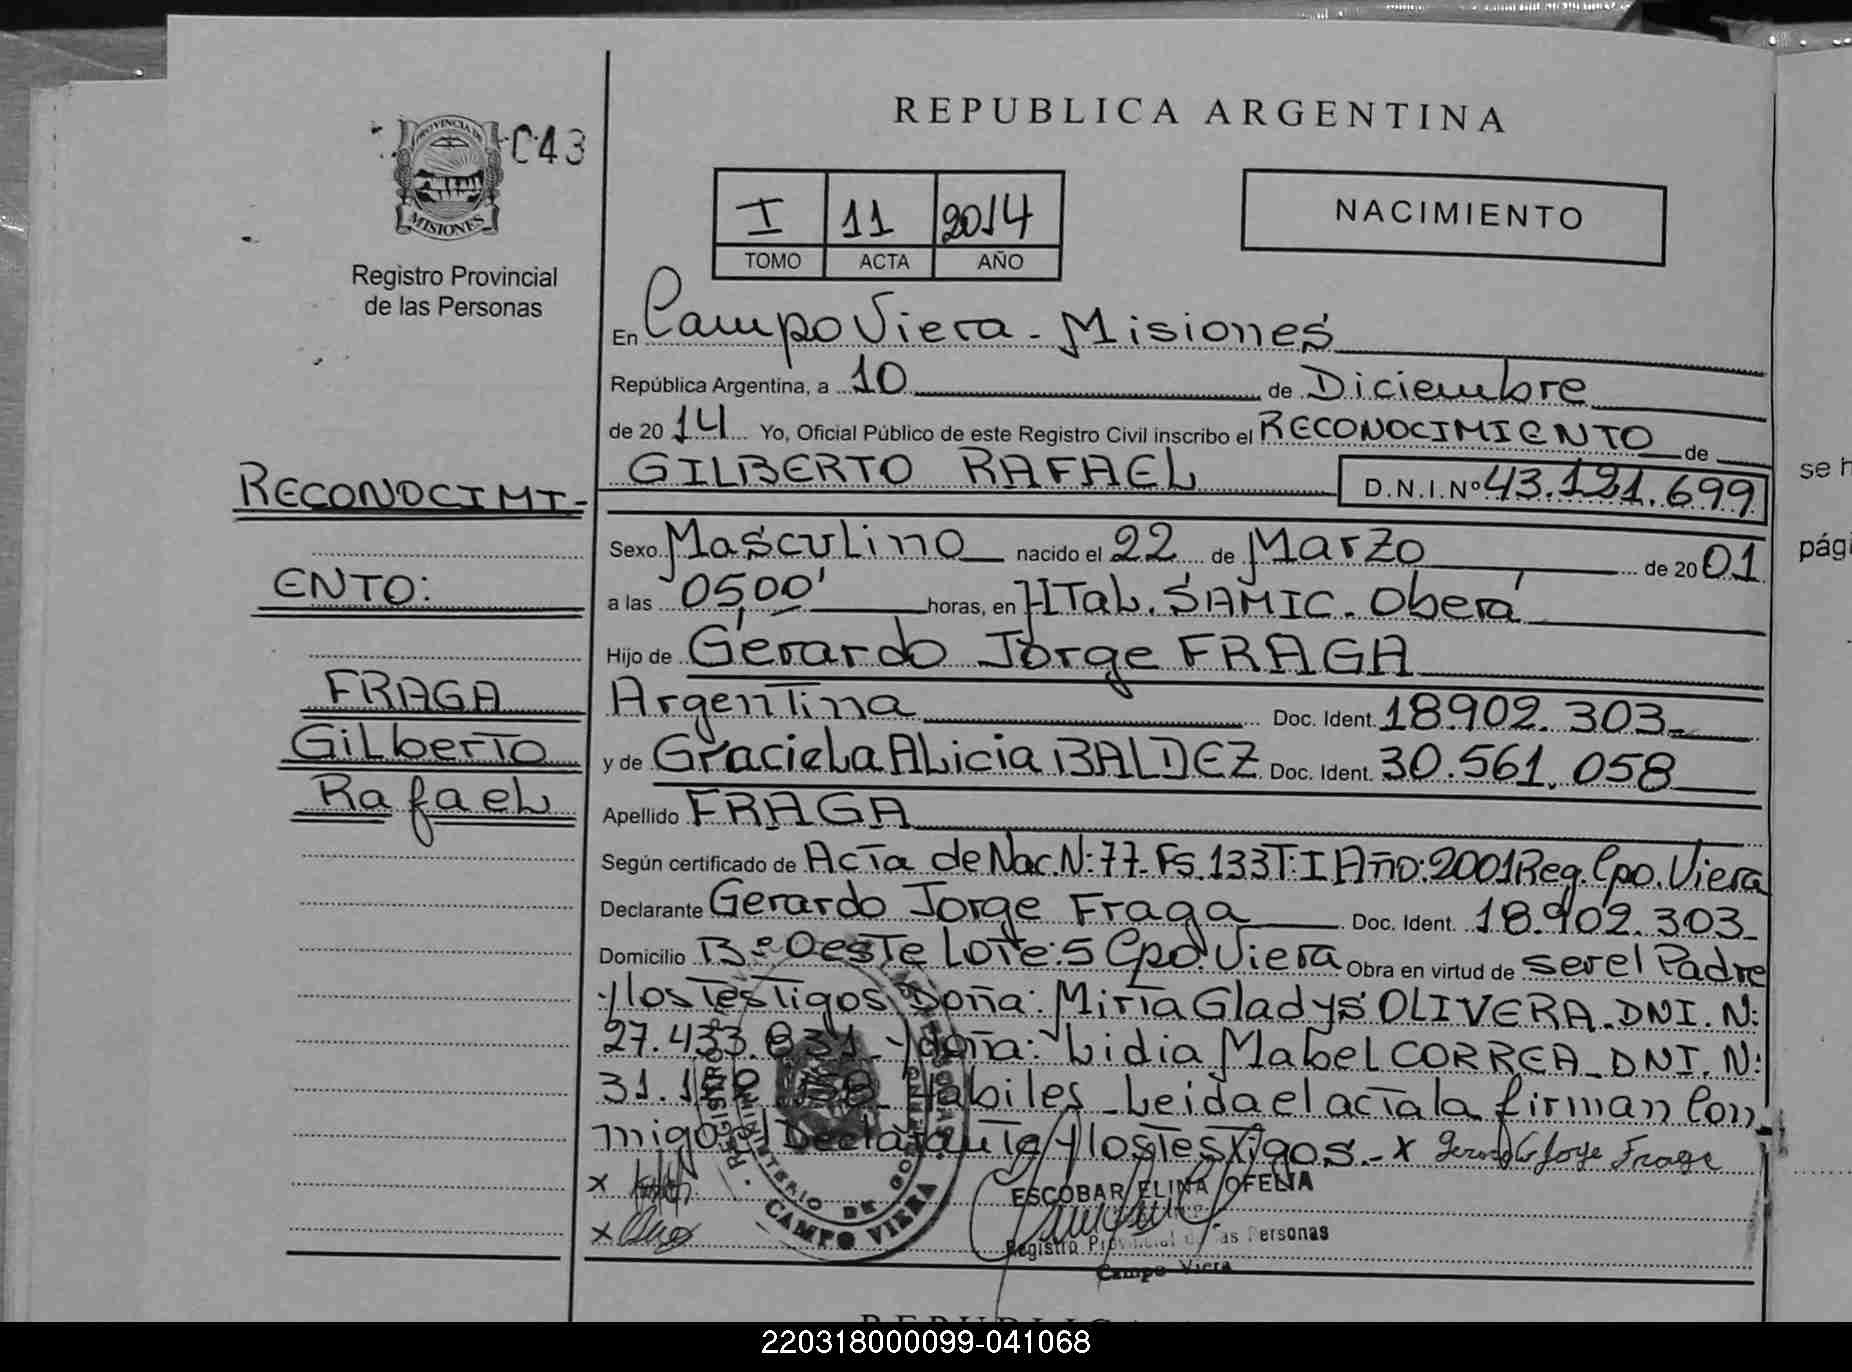 REPUBLICA ARGENTINA
C43
PROVINCIA DE
MISIONES
Registro Provincial
de las Personas
I 11 2014
TOMO ACTA AÑO
NACIMIENTO
En Campo Viera - Misiones
República Argentina, a 10 de Diciembre
de 2014 Yo, Oficial Público de este Registro Civil inscribo el RECONOCIMIENTO de
GILBERTO RAFAEL D.N.I.Nº 43.121.699
RECONOCIMI-
ENTO:
FRAGA
Gilberto
Rafael
Sexo Masculino nacido el 22 de Marzo de 2001
a las 05,00' horas, en HTal. SAMIC. Oberá
Hijo de Gerardo Jorge FRAGA
Argentina Doc. Ident. 18902.303
y de Graciela Alicia BALDEZ Doc. Ident. 30.561.058
Apellido FRAGA
Según certificado de Acta de Nac. N: 77. Fs. 133 T: I Año: 2001 Reg. Cpo. Viera
Declarante Gerardo Jorge Fraga Doc. Ident. 18.902.303
Domicilio Bº Oeste Lote: 5 Cpo. Viera Obra en virtud de ser el Padre
y los Testigos Doña: Mirta Gladys OLIVERA. DNI. N:
27.433.831 y doña: Lidia Mabel CORREA DNI. N:
31. Habiles Leida el acta la firman Con
migo el Declarante y los Testigos.- x Gerardo Jorge Fraga
x
x
REGISTRO
MINISTERIO DE GOBIERNO
CAMPO VIERA
ESCOBAR ELINA OFELIA
Registro Provincial de las Personas
Campo Viera
se h
pági
220318000099-041068